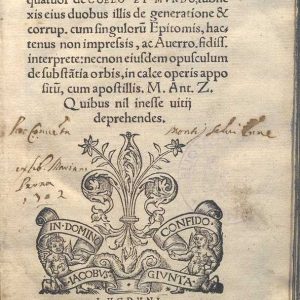 quatuor de COELO ET MVNDO, subne
xis eius duobus illis de generatione &
corrup. cum singulorũ Epitomis, hac-
tenus non impressis, ac Auerro. fidiss.
interprete: necnon eiusdem opusculum
de substãtia orbis, in calce operis appo
sitũ, cum apostillis. M. Ant. Z.
Quibus nil inesse uitij
deprehendes.
IN DOMIN
CONFIDO
IACOBVS GIVNTA